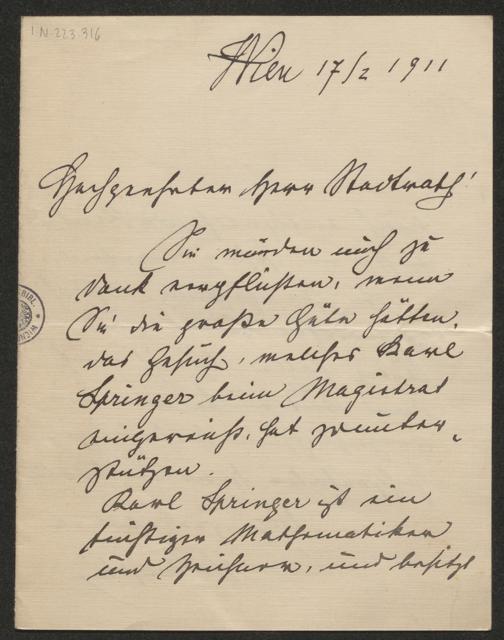 I.N. 223.316
Wien 17/2 1911
Hochgeehrter Herr Stadtrath!
Sie würden mich zu
Dank verpflichten, wenn
Sie die große Güte hätten,
das Gesuch, welches Karl
Springer beim Magistrat
eingereicht, hat zu unter-
stützen.
Karl Springer ist ein
tüchtiger Mathematiker
und Zeichner, und besitzt